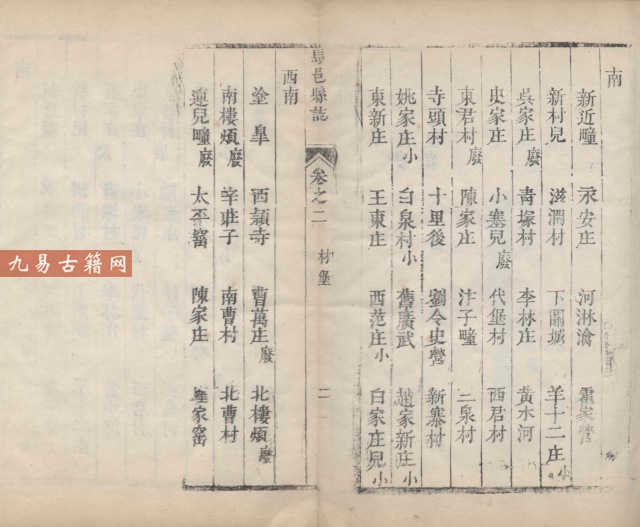 南
新近疃 永安庄 河淋滄 霍家營
新村兒 滋潤村 下關城 羊十二庄小
吳家庄廢 青塚村 李林庄 黄水河
史家庄 小寨兒廢 代堡村 西君村
東君村廢 陳家庄 泮子疃 三泉村
寺頭村 十里後 劉令史營 新寨村
姚家庄小 白泉村小 舊廣武 趙家新庄小
東新庄 王東庄 西范庄小 白家庄兒小
馬邑縣誌 卷之二 村堡 二
西南
塗皐 西韻寺 曹萬庄廢 北樓煩廢
南樓煩廢 辛莊子 南曹村 北曹村
蓮兒疃廢 太平窰 陳家庄 家窰
九易古籍网